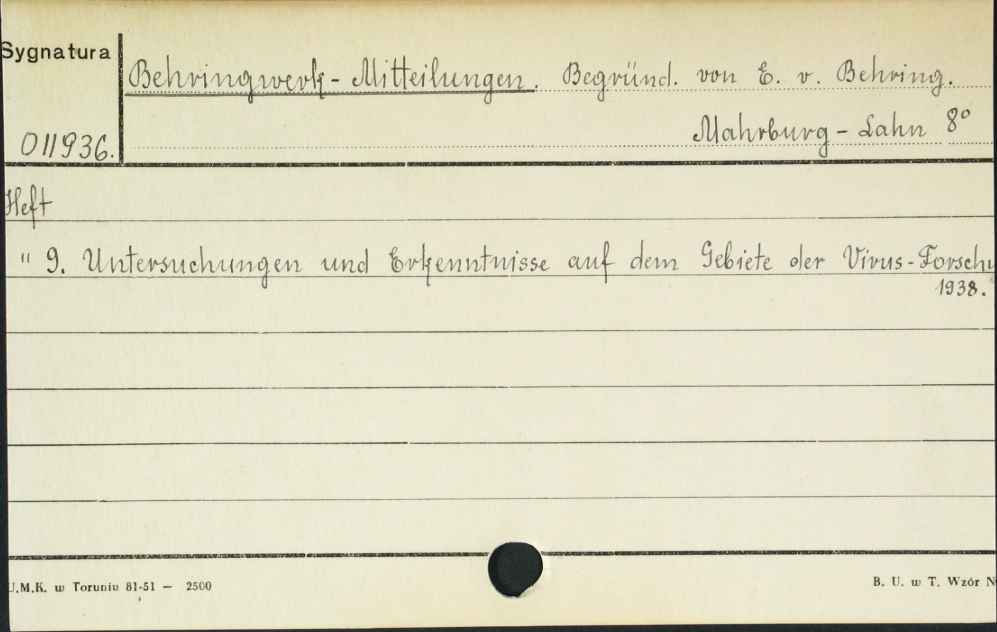 Sygnatura
Behringwerk - Mitteilungen. Begründ. von E. v. Behring.
Mahrburg - Lahn 8°
011936.
Heft
" 9. Untersuchungen und Erkenntnisse auf dem Gebiete der Virus-Forschu
1938.
U.M.K. w Toruniu 81-51 — 2500
B. U. w T. Wzór N